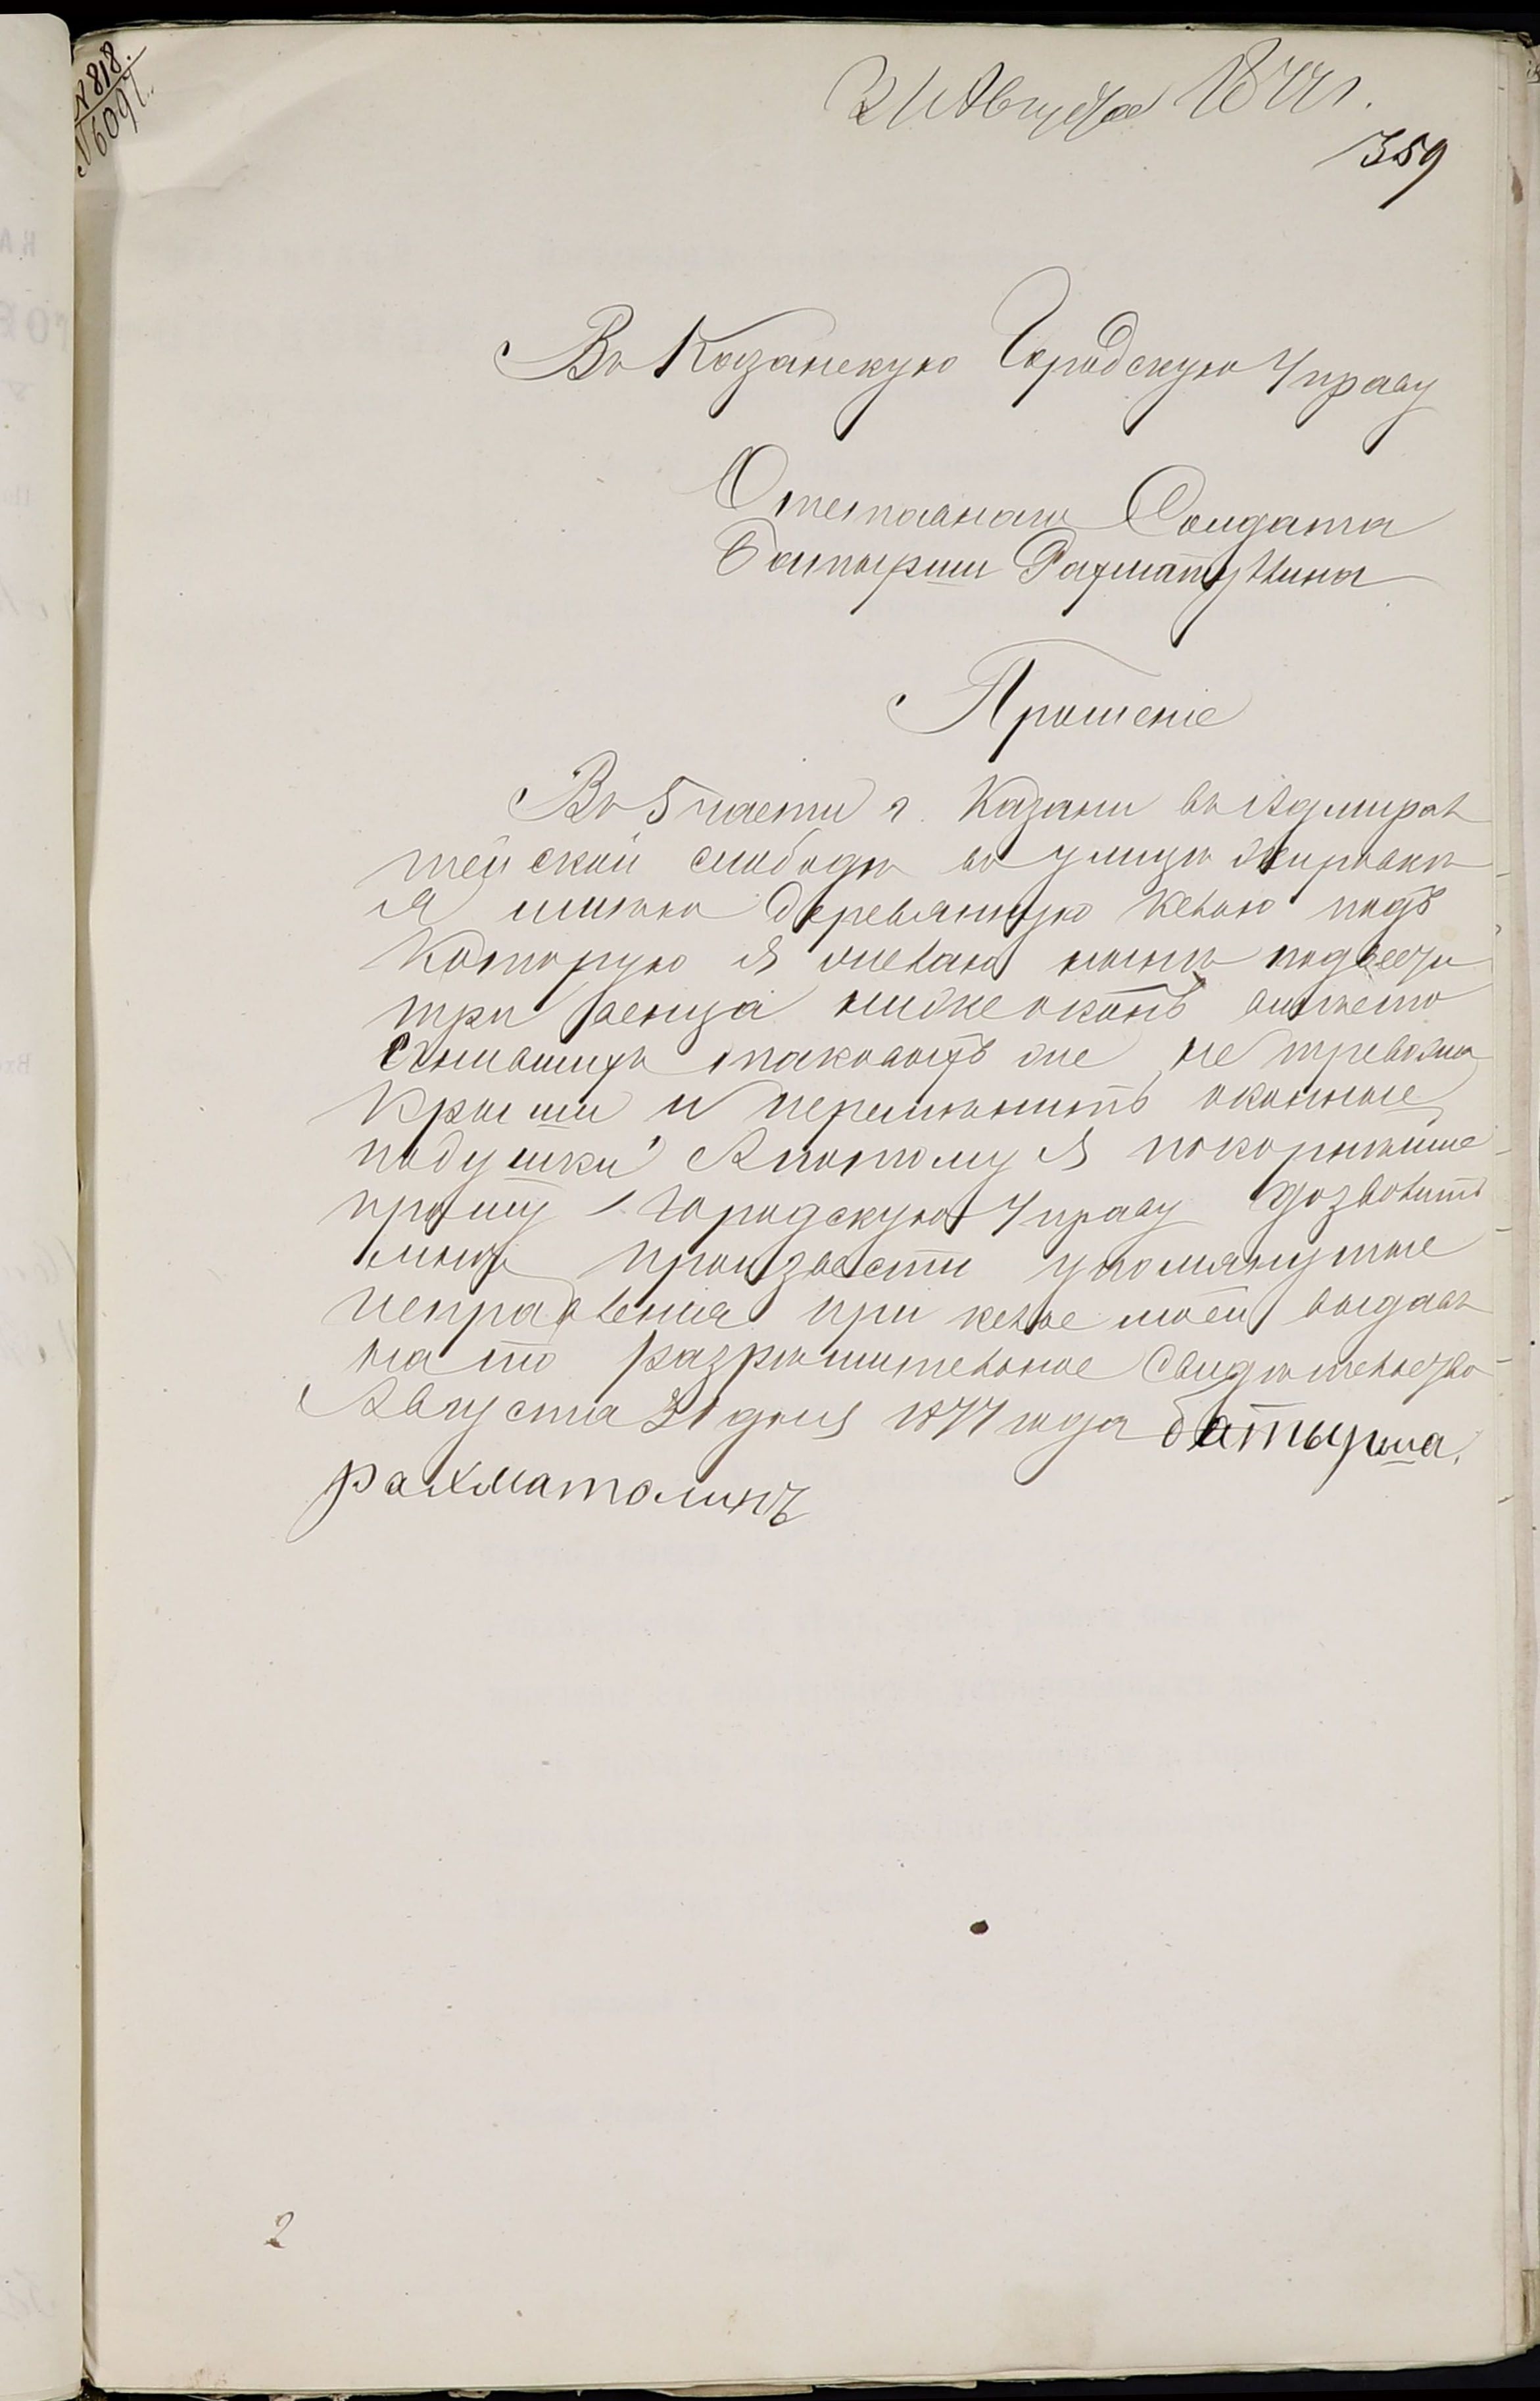 N 818.
N 6097
21 Августа 1877 г.
359
Въ Казанскую Городскую Управу
Отставнаго Солдата
Батырши Рахматуллина
Прошеніе
Въ 5 части г. Казани въ Адмирал
тейской слободѣ въ улицѣ
я имѣю деревянную келью подъ
которую я желаю нынѣ подвести
три венца ниже оконъ вмѣсто
сгнившихъ таковыхъ же не тревожа
крыши и перемѣнить оконные
подушки А потому я покорнѣйше
прошу Городскую Управу дозволить
мнѣ произвести упомянутые
исправленія при кельѣ моей выдавъ
на то разрѣшительное свидѣтельство
Августа 21 дня 1877 года батырша
рахматолинъ
2